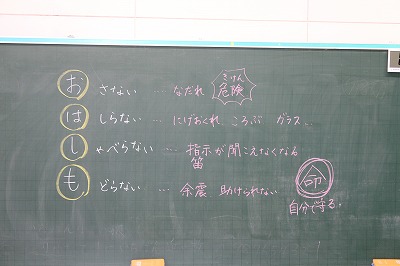 おさない … なだれ 危険
きけん
はしらない … にげおくれ、ころぶ ガラス
しゃべらない … 指示が聞こえなくなる
笛
もどらない … 余震 助けられない
命
自分で守る。